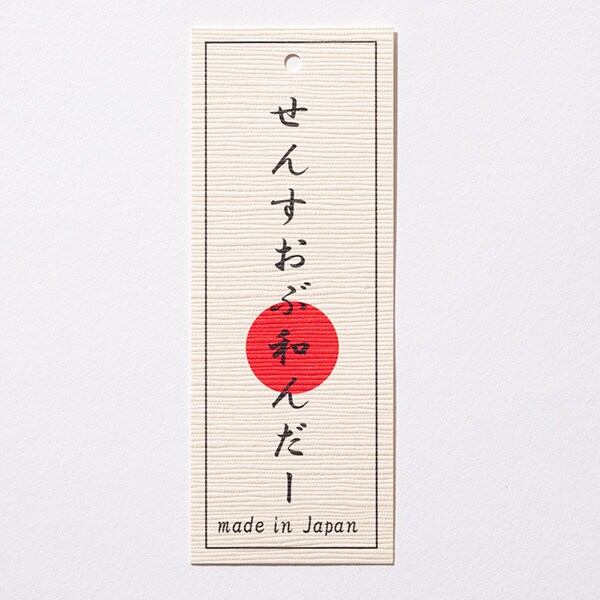 せんすおぶ和んだー
made in Japan